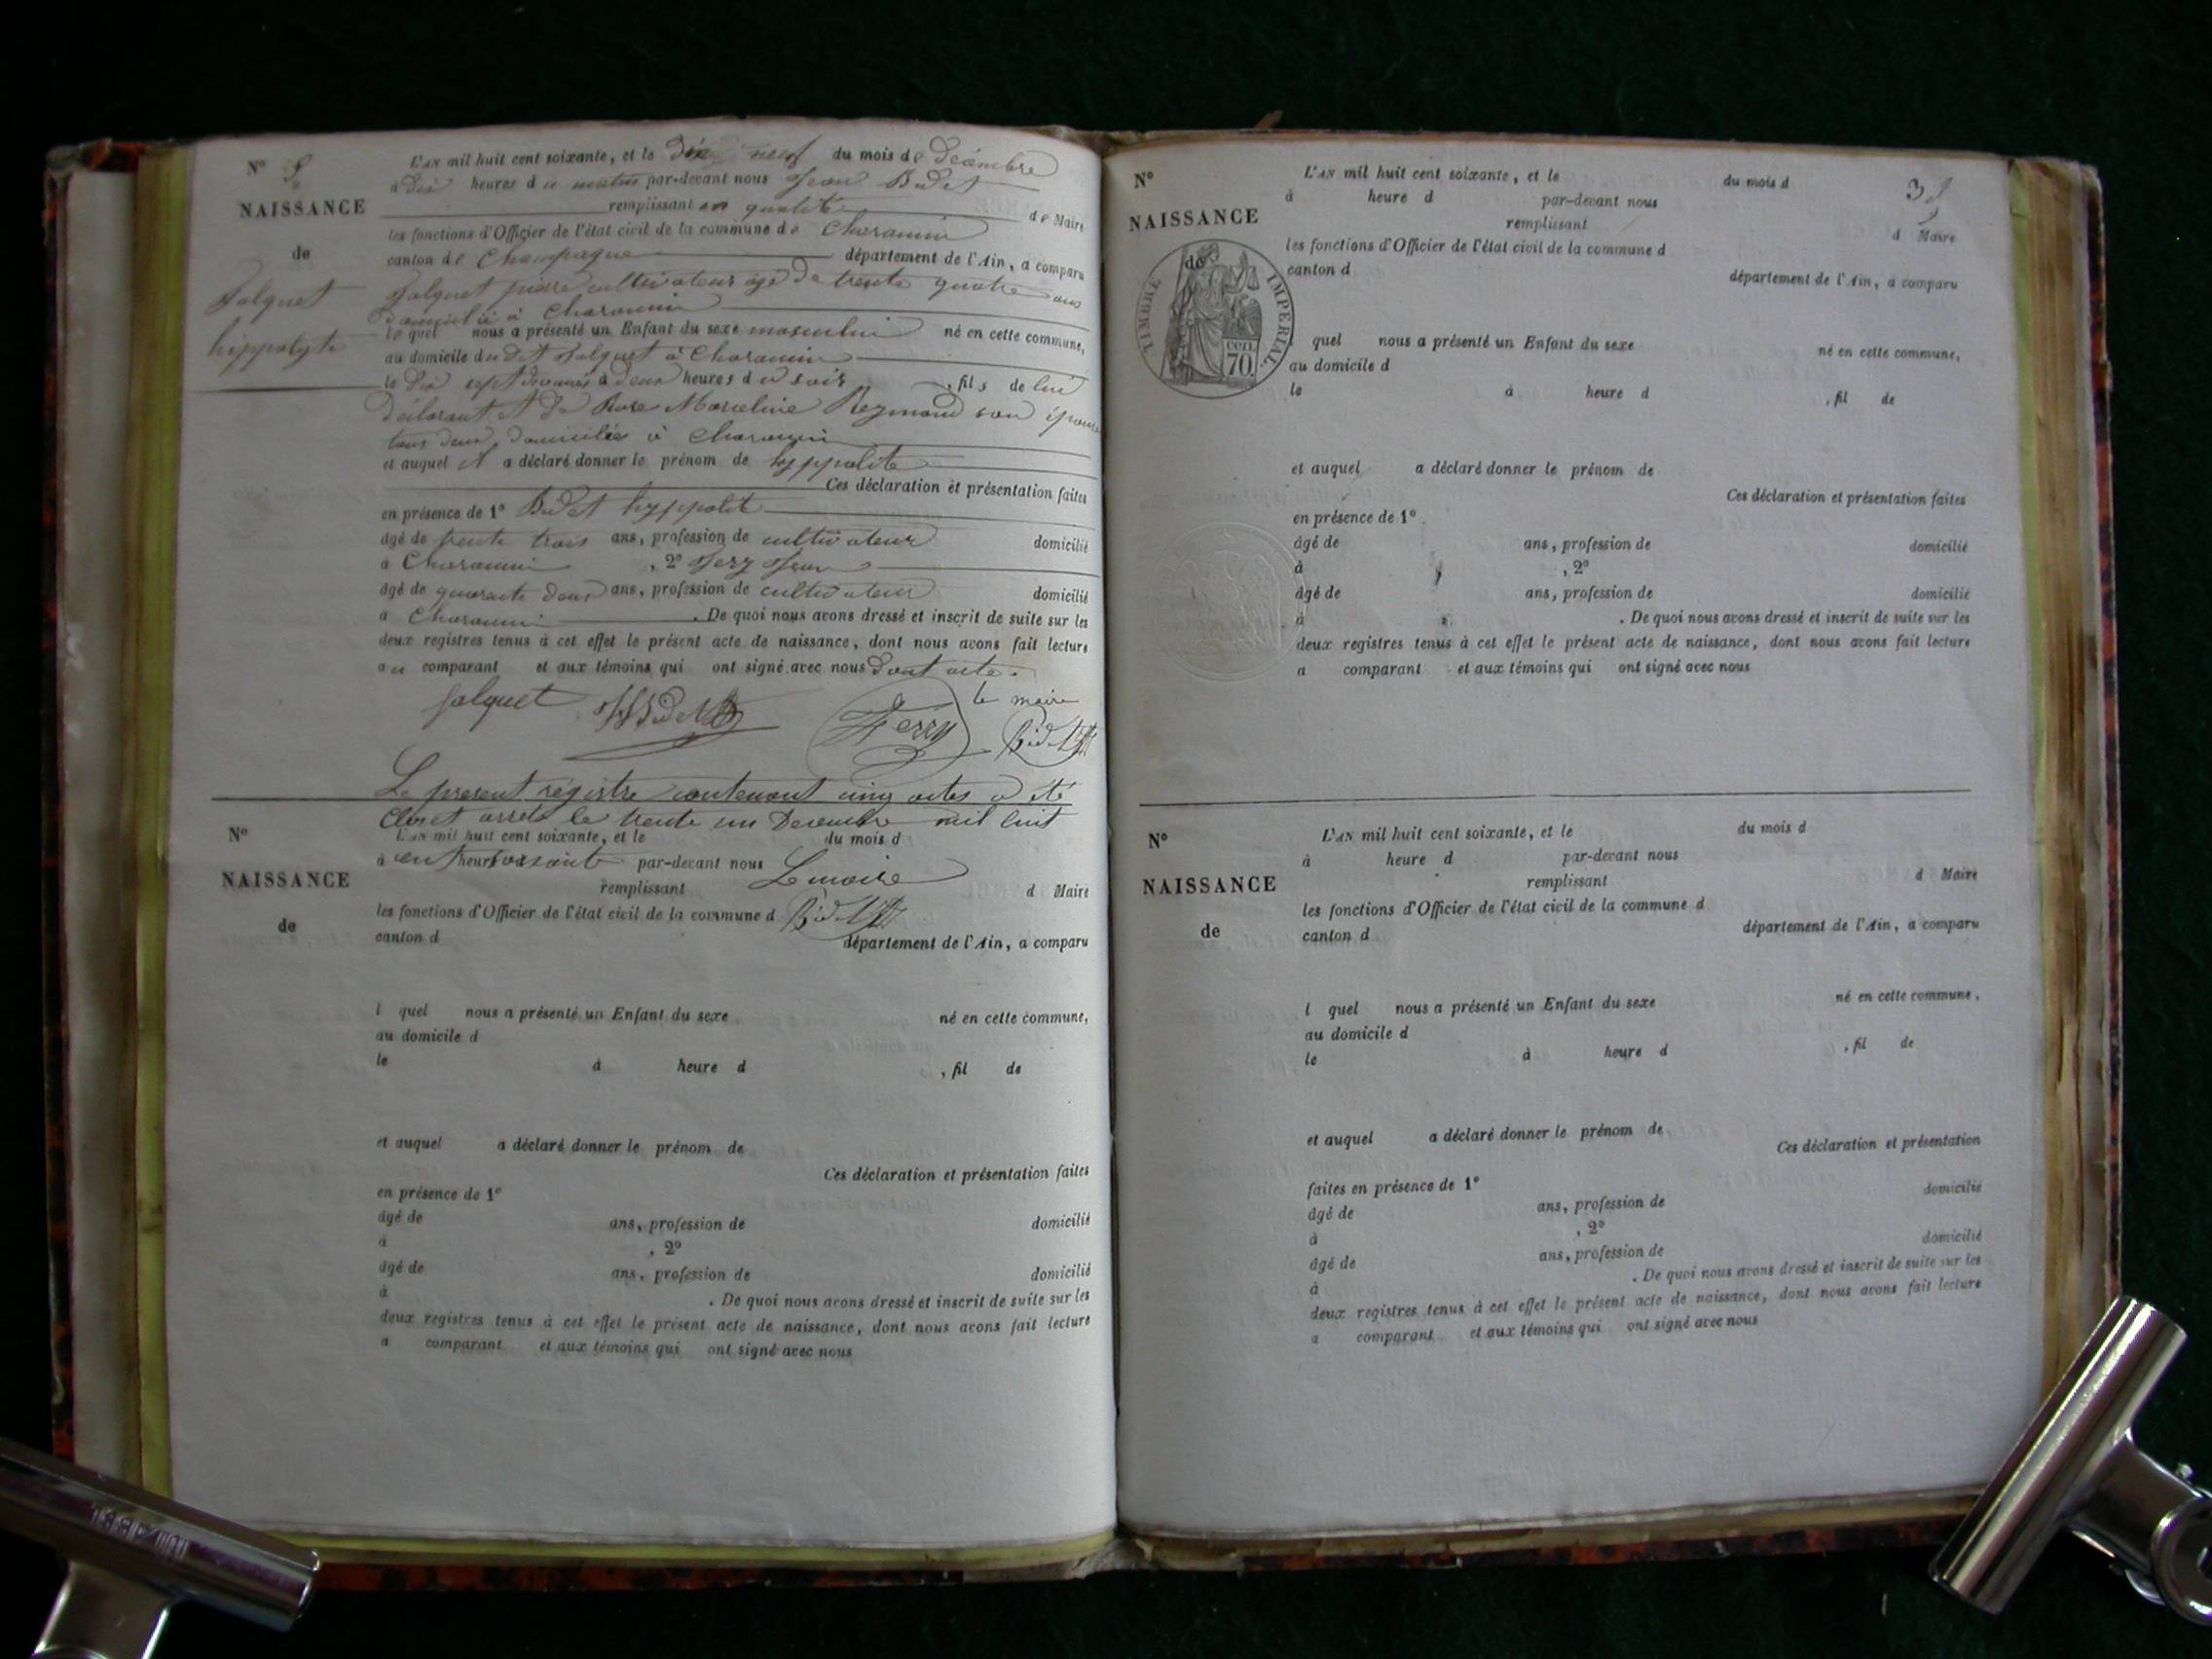 N° 5
L'AN mil huit cent soixante, et le dix neuf du mois de Décembre
à dix heures du matin par-devant nous Jean Bidet
NAISSANCE
remplissant en qualité de Maire
les fonctions d'Officier de l'état civil de la commune de Charancin
de
canton de Champagne département de l'Ain, a comparu
Jolquet
Jolquet pierre cultivateur âgé de trente quatre ans
domicilié à Charancin
hippolyte
lequel nous a présenté un Enfant du sexe masculin né en cette commune,
au domicile du dit Jolquet à Charancin
le dix sept à deux heures du soir, fils de lui
déclarant et de Rose Marceline Reymond son épouse
tous deux domiciliés à Charancin
et auquel il a déclaré donner le prénom de hyppolite
Ces déclaration et présentation faites
en présence de 1° Bidet hyppolite
âgé de trente trois ans, profession de cultivateur domicilié
à Charancin, 2° Jean
âgé de quarante deux ans, profession de cultivateur domicilié
à Charancin. De quoi nous avons dressé et inscrit de suite sur les
deux registres tenus à cet effet le présent acte de naissance, dont nous avons fait lecture
au comparant et aux témoins qui ont signé avec nous dont acte.
Jolquet Le maire
Bidet
Le présent régistre contenant cinq actes a été
Clos et arrêté le trente un Decembre mil huit
N°
L'AN mil huit cent soixante, et le du mois d
à cent heure soixante par-devant nous Le maire
NAISSANCE
remplissant d Maire
les fonctions d'Officier de l'état civil de la commune d Bidet
de
canton d département de l'Ain, a comparu
l quel nous a présenté un Enfant du sexe né en cette commune,
au domicile d
le à heure d , fil de
et auquel a déclaré donner le prénom de
Ces déclaration et présentation faites
en présence de 1°
âgé de ans, profession de domicilié
à , 2°
âgé de ans, profession de domicilié
à . De quoi nous avons dressé et inscrit de suite sur les
deux registres tenus à cet effet le présent acte de naissance, dont nous avons fait lecture
a comparant et aux témoins qui ont signé avec nous
N°
L'AN mil huit cent soixante, et le du mois d
à heure d par-devant nous
NAISSANCE
remplissant d Maire
les fonctions d'Officier de l'état civil de la commune d
de
canton d département de l'Ain, a comparu
TIMBRE IMPERIAL
cen. 70.
quel nous a présenté un Enfant du sexe né en cette commune,
au domicile d
le à heure d , fil de
et auquel a déclaré donner le prénom de
Ces déclaration et présentation faites
en présence de 1°
âgé de ans, profession de domicilié
à , 2°
âgé de ans, profession de domicilié
à . De quoi nous avons dressé et inscrit de suite sur les
deux registres tenus à cet effet le présent acte de naissance, dont nous avons fait lecture
a comparant et aux témoins qui ont signé avec nous
N°
L'AN mil huit cent soixante, et le du mois d
à heure d par-devant nous
NAISSANCE
remplissant d Maire
les fonctions d'Officier de l'état civil de la commune d
de
canton d département de l'Ain, a comparu
l quel nous a présenté un Enfant du sexe né en cette commune,
au domicile d
le à heure d , fil de
et auquel a déclaré donner le prénom de
Ces déclaration et présentation
faites en présence de 1°
âgé de ans, profession de domicilié
à , 2°
âgé de ans, profession de domicilié
à . De quoi nous avons dressé et inscrit de suite sur les
deux registres tenus à cet effet le présent acte de naissance, dont nous avons fait lecture
a comparant et aux témoins qui ont signé avec nous